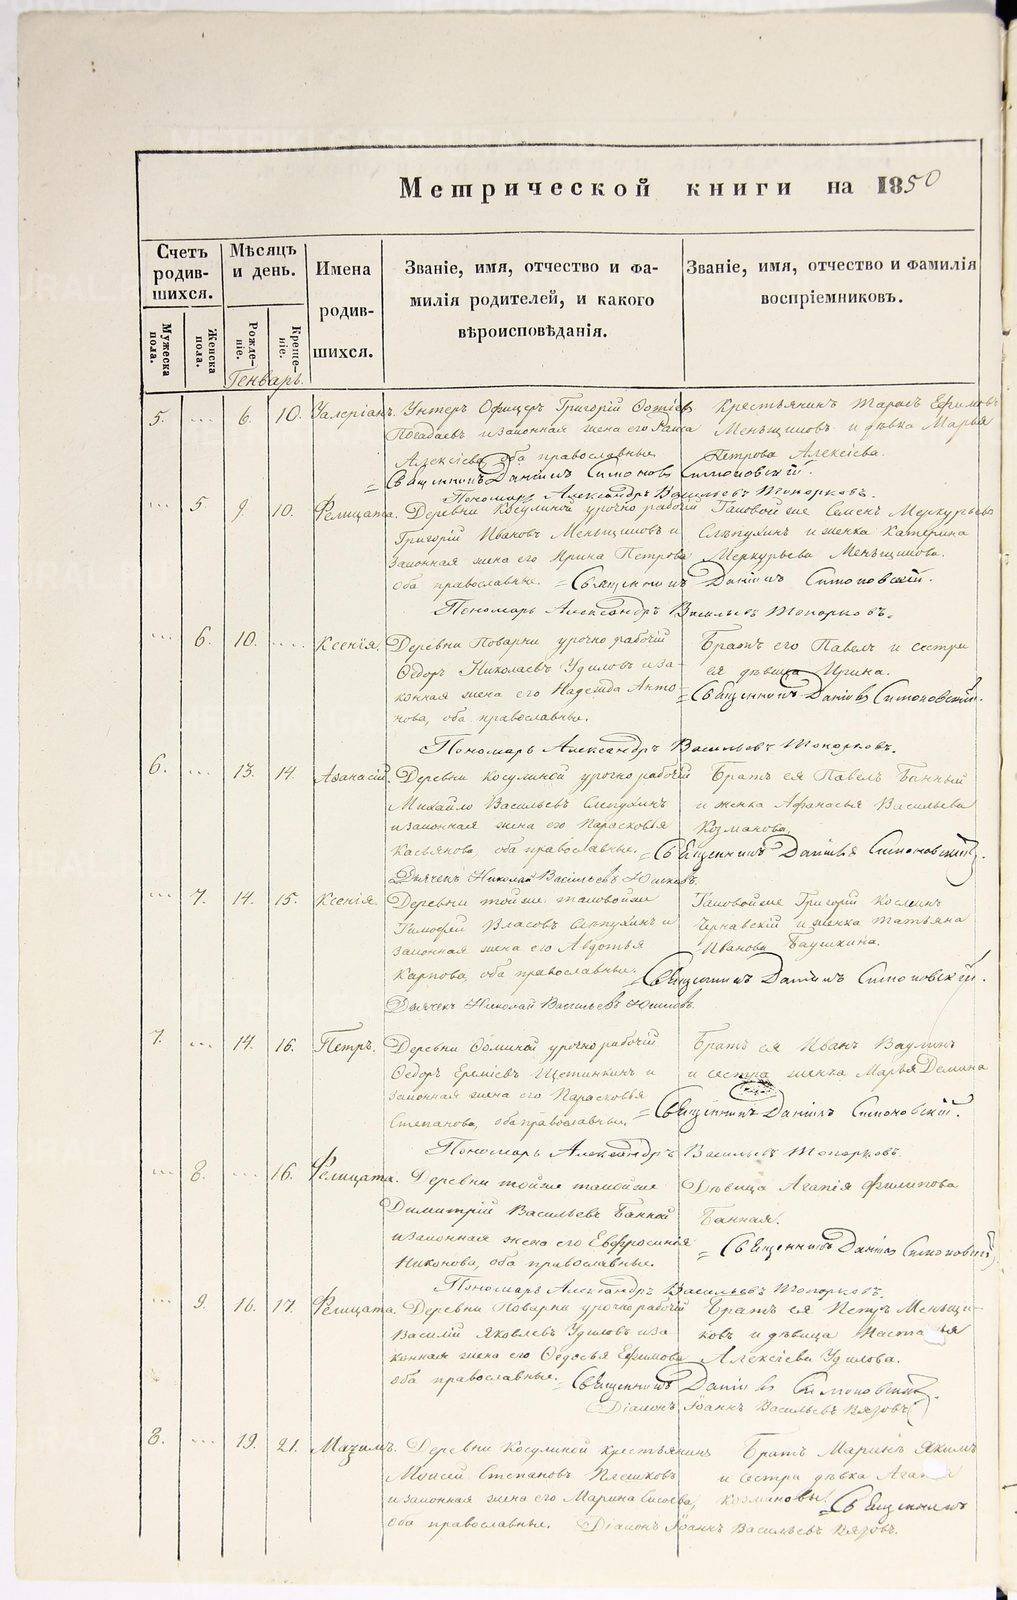 Метрической книги на 1850
Счетъ родив-шихся.
Мужеска пола.
Женска пола.
Мѣсяцъ и день.
Рожде-ніе.
Креще-ніе.
Имена родив-шихся.
Званіе, имя, отчество и фа-
милія родителей, и какого
вѣроисповѣданія.
Званіе, имя, отчество и фамилія
воспріемниковъ.
Генварь.
5. ... 6. 10. Валеріанъ. Унтеръ Офицеръ Григорій Фотіевъ Крестьянинъ Тарасъ Ефимовъ
и законная жена его Раиса Меньщиковъ и дѣвка Марья
Алексіева, оба православные Петрова Алексіева.
Священникъ Даніилъ Симоновскій.
Пономарь Александръ Васильевъ Топорковъ.
... 5 9. 10. Фелицата. Деревни Косулиной урочнорабочій Таковой же Семенъ Меркурьевъ
Григорій Ивановъ Меньщиковъ и Слѣпухинъ и женка Катерина
законная жена его Ирина Петрова Меркурьева Меньщикова.
оба православные. = Священникъ Даніилъ Симоновскій.
Пономарь Александръ Васильевъ Топорковъ.
... 6. 10. .... Ксенія. Деревни Поварни урочнорабочій Братъ его Павелъ и сестра
Федоръ Николаевъ Удиловъ и за- ея дѣвица
конная жена его Надежда Анто- = Священникъ Даніилъ Симоновскій.
нова, оба православные.
Пономарь Александръ Васильевъ Топорковъ.
6. ... 13. 14. Аѳанасій. Деревни Косулиной урочнорабочій Братъ ея Павелъ Банный
Михайло Васильевъ Слепухинъ и женка Афанасья Васильева
и законная жена его Парасковья Козманова.
Касьянова оба православные. = Священникъ Даніилъ Симоновскій.
Дьячекъ Николай Васильевъ
... 7. 14. 15. Ксенія. Деревни тойже таковойже Таковойже Григорій
Тимофей Власовъ Слепухинъ и Чернавскій и женка Татьяна
законная жена его Авдотья Иванова Баушкина.
Карпова, оба православные. = Священникъ Даніилъ Симоновскій.
Дьячекъ Николай Васильевъ
7. ... 14. 16. Петръ. Деревни Ѳоминой урочнорабочій Братъ ея Иванъ Ваулинъ
Федоръ Еремѣевъ Щетинкинъ и и сестра женка Марья Демина
законная жена его Парасковья = Священникъ Даніилъ Симоновскій.
Степанова, оба православные.
Пономарь Александръ Васильевъ Топорковъ.
... 8. ... 16. Фелицата. Деревни тойже таковойже Дѣвица Агапія Филипова
Димитрій Васильевъ Банной Банная.
и законная жена его Евфросинія = Священникъ Даніилъ Симоновскій
Никонова, оба православные.
Пономарь Александръ Васильевъ Топорковъ.
... 9. 16. 17. Фелицата. Деревни Поварни урочнорабочій Братъ ея Петръ Меньщи-
Василій Яковлевъ Удиловъ и за- ковъ и дѣвица
конная жена его Федосья Ефимова Алексіева Удилова.
оба православные. = Священникъ Даніилъ Симоновскій.
Діаконъ Іоаннъ Васильевъ Вязовъ
8. ... 19. 21. Деревни Косулиной крестьянинъ Братъ Марины Якимъ
Моисей Степановъ Плешковъ и сестра дѣвка
и законная жена его Марина Козмановы. = Священникъ
оба православные. Діаконъ Іоаннъ Васильевъ Вязовъ.